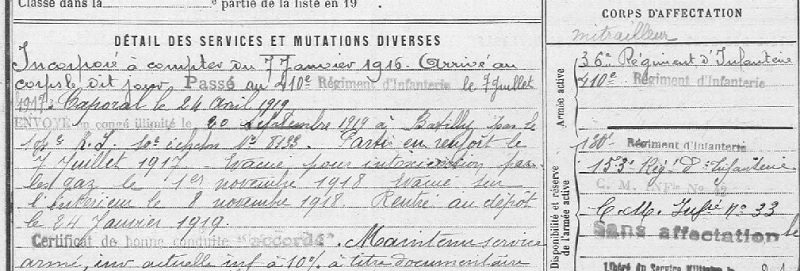 Classe dans la
e partie de la liste en 19
DÉTAIL DES SERVICES ET MUTATIONS DIVERSES
Incorporé à compter du 7 Janvier 1916. Arrivé au
corps le dit jour Passé au 410e Régiment d'Infanterie le 7 Juillet
1917. Caporal le 24 Avril 1919
ENVOYÉ en congé illimité le 20 Septembre 1919 à Batilly par le
104e R.I. 10e échelon No 8133. Partie en renfort le
7 Juillet 1917 Evacué pour intoxication par
les gaz le 1er novembre 1918 Evacué sur
l'intérieur le 8 novembre 1918. Rentré au dépôt
le 24 Janvier 1919.
Certificat de bonne conduite "accordé". Maintenu service
armé, inv actuelle inf à 10% à titre documentaire
CORPS D'AFFECTATION
mitrailleur
Armée active
36e Régiment d'Infanterie
410e Régiment d'Infanterie
Disponibilité et réserve
de l'armée active
130e Régiment d'Infanterie
153e Rég. d'Infanterie
C. M. INFie No 33
C. M. Infie No 33
Sans affectation le